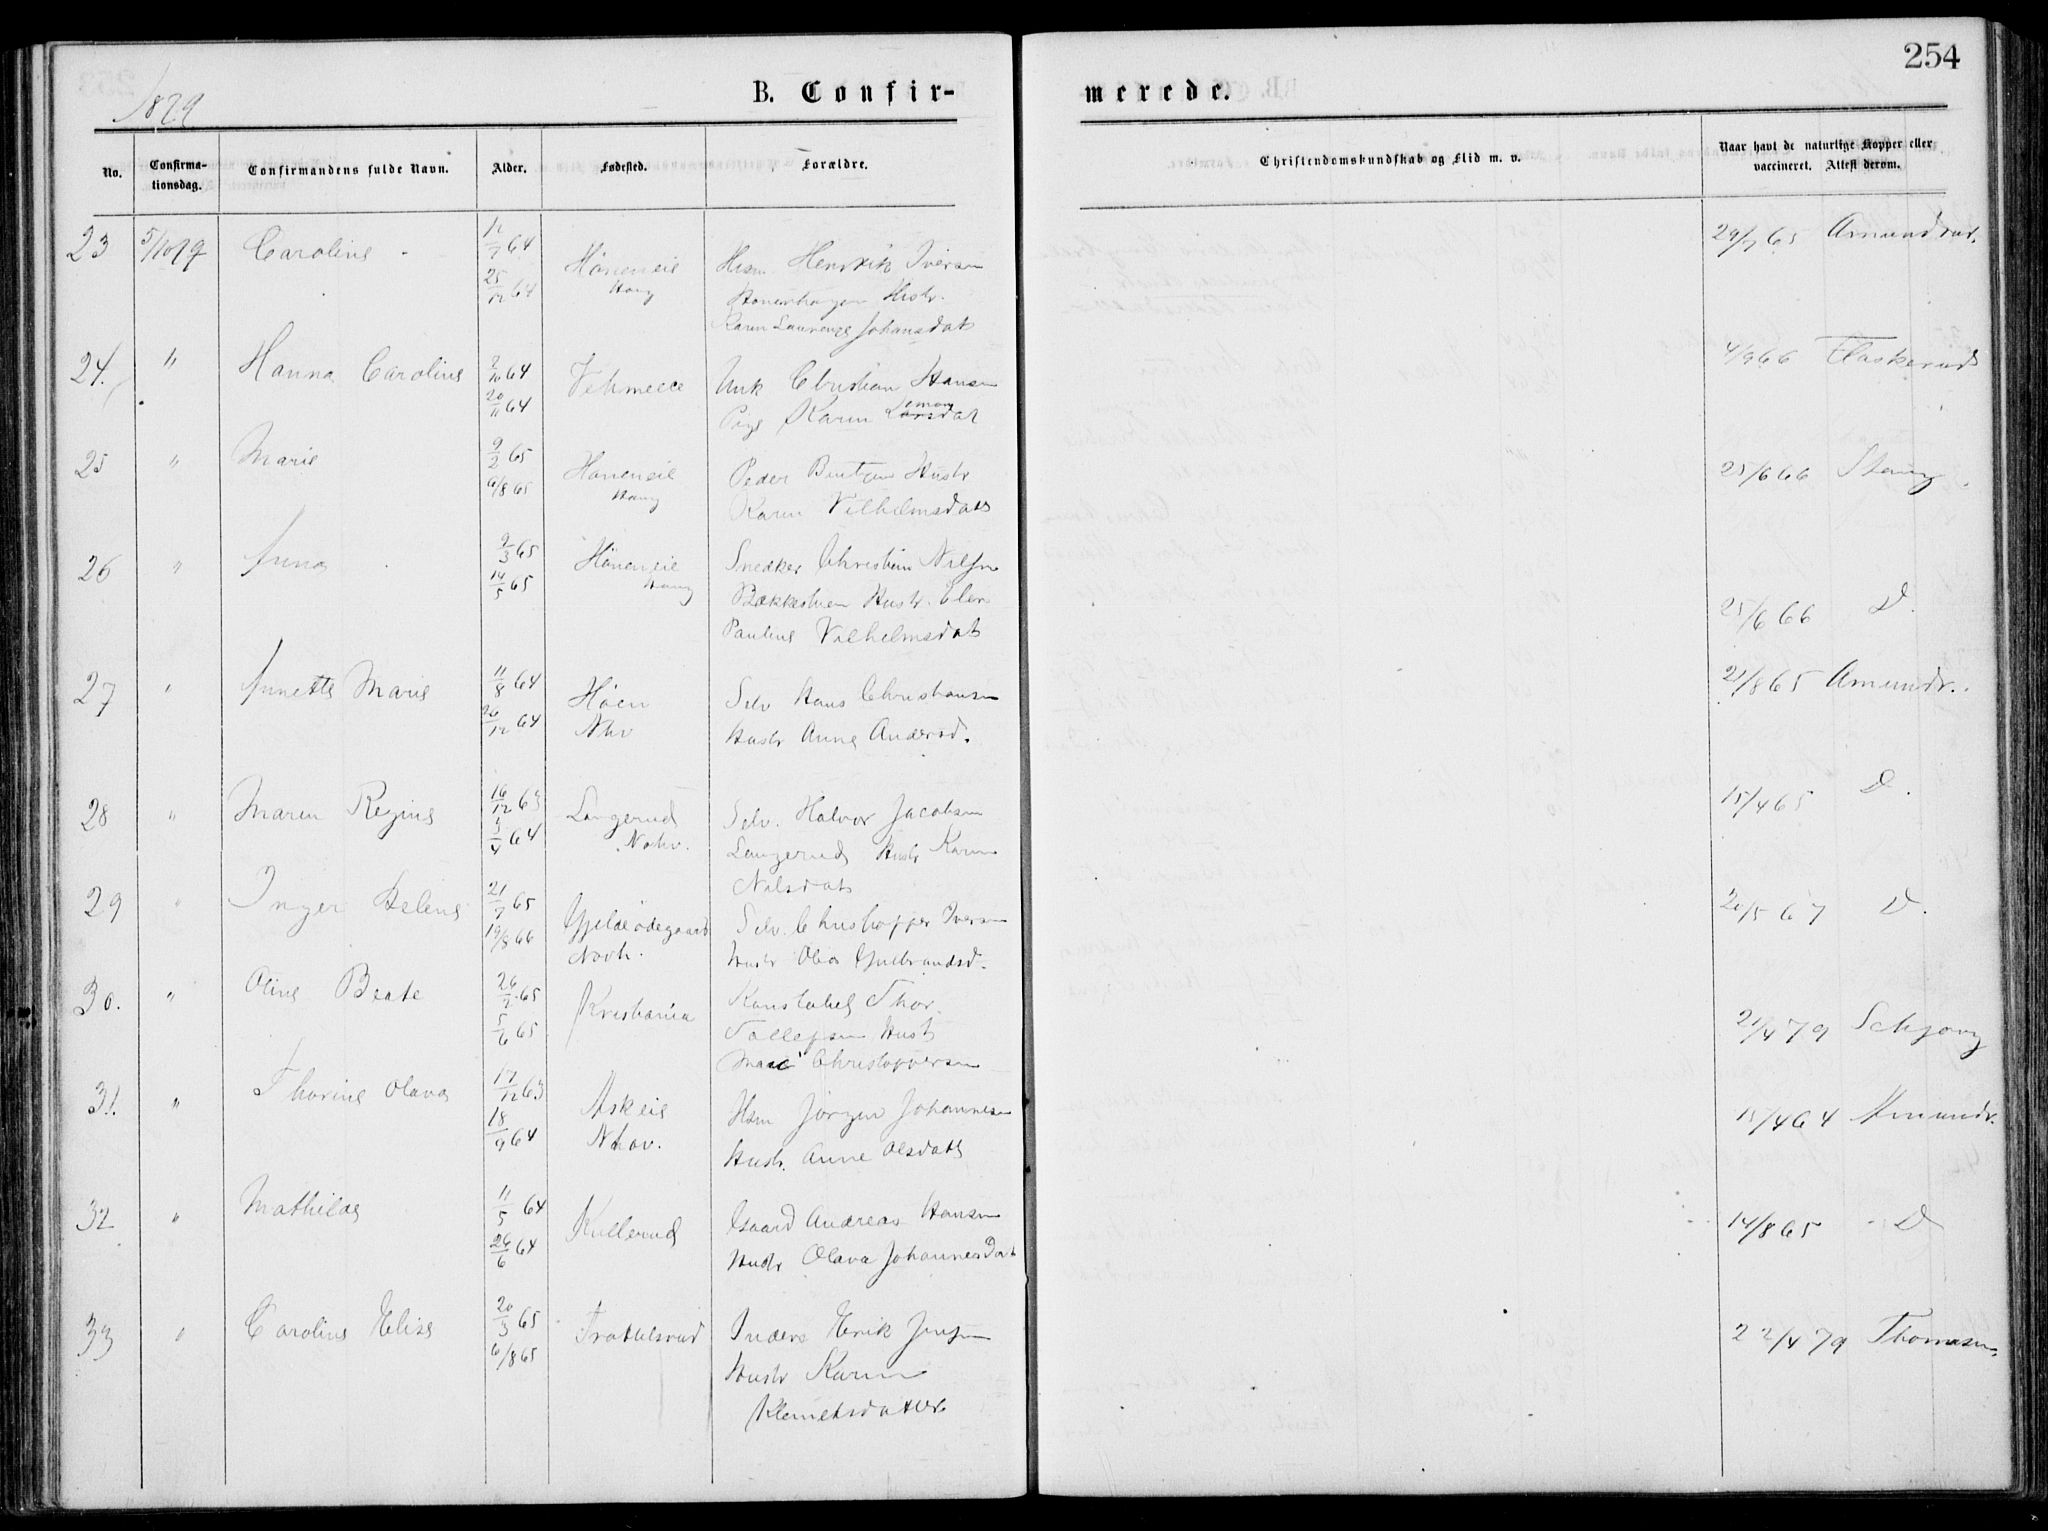 254
1879
B. Confir-
merede.
No.
Confirma-
tionsdag.
Confirmandens fulde Navn.
Alder.
Fødested.
Forældre.
Christendomskundskab og Flid m. v.
Naar havt de naturlige Kopper eller
vaccineret. Attest derom.
23 5/10 79 Caroline 12/7 64 Høneneie Hsm. Henrik Iversen 29/7 65 Amundrud.
25/12 64 Haug Hustr.
Karin Laurense Johansdat
24. " Hanna Caroline 2/10 64 Unk Christian Hansen 4/9 66 Flaskerud
20/11 64 Pige Karin Larsdat
25 " Marie 9/2 65 Høneneie Peder Hustr 25/6 66
6/8 65 Haug Karin Vilhelmsdat
26 " Anna 9/3 65 Høneneie Snedker Christian Nilsen
14/5 65 Haug Bækkestuen Hustr. Elen 25/6 66 D.
Pauline Vilhelmsdat
27 " Annette Marie 11/8 64 Høen Selv Hans Christiansen 21/8 65 Amundr.
26/12 64 Nhv Hustr Anne Andersd.
28 " Maren Regine 16/12 63 Langerud Selv. Halvor Jacobsen 15/4 65 D.
3/4 64 Norhv. Langerud Hustr Karen
Nilsdat
29 " Inger Helene 21/7 65 Gjeldeødegaard Selv. Christoffer Iversen 20/5 67 D.
19/8 66 Norh. Hustr Olea Gulbrandsd.
30. " Oline Beate 26/2 65 Kristiania Konstabel Thor
5/6 65 Tollefsen Hust 21/4 79 Schjong
Christophersen
31. " Thorine Olava 17/12 63 Askeie Hsm Jörgen Johannesen 15/4 64 Amundr.
18/9 64 Nhov. Hustr. Anne Olsdatt
32 " Mathilde 11/5 64 Kullerud Gaard Andreas Hansen 14/8 65 D
26/6 64 Hustr Olava Johannesdat
33 " Caroline Elise 20/3 65 Tratthesrud Inders Henrik Jensen 22/4 79 Thomasen.
6/8 65 Hustr Karen
Klemetsdatter